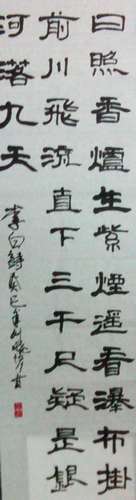 日照香爐生紫煙遥看瀑布掛
前川飛流直下三千尺疑是銀
河落九天
李白詩癸巳